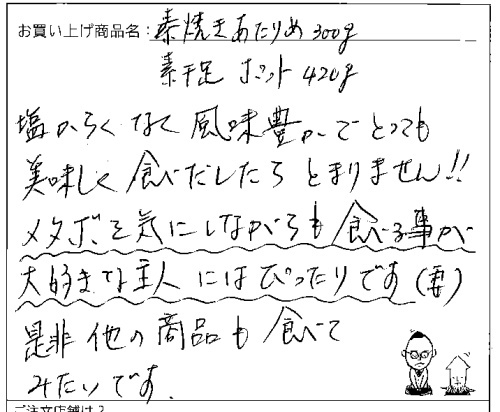 お買い上げ商品名：素焼きあたりめ300g
素干足 ポット 420g
塩からくなく風味豊かでとっても
美味しく食べだしたらとまりません!!
メタボを気にしながらも食べる事が
大好きな主人にはぴったりです(妻)
是非他の商品も食べて
みたいです.
ご注文店舗は？